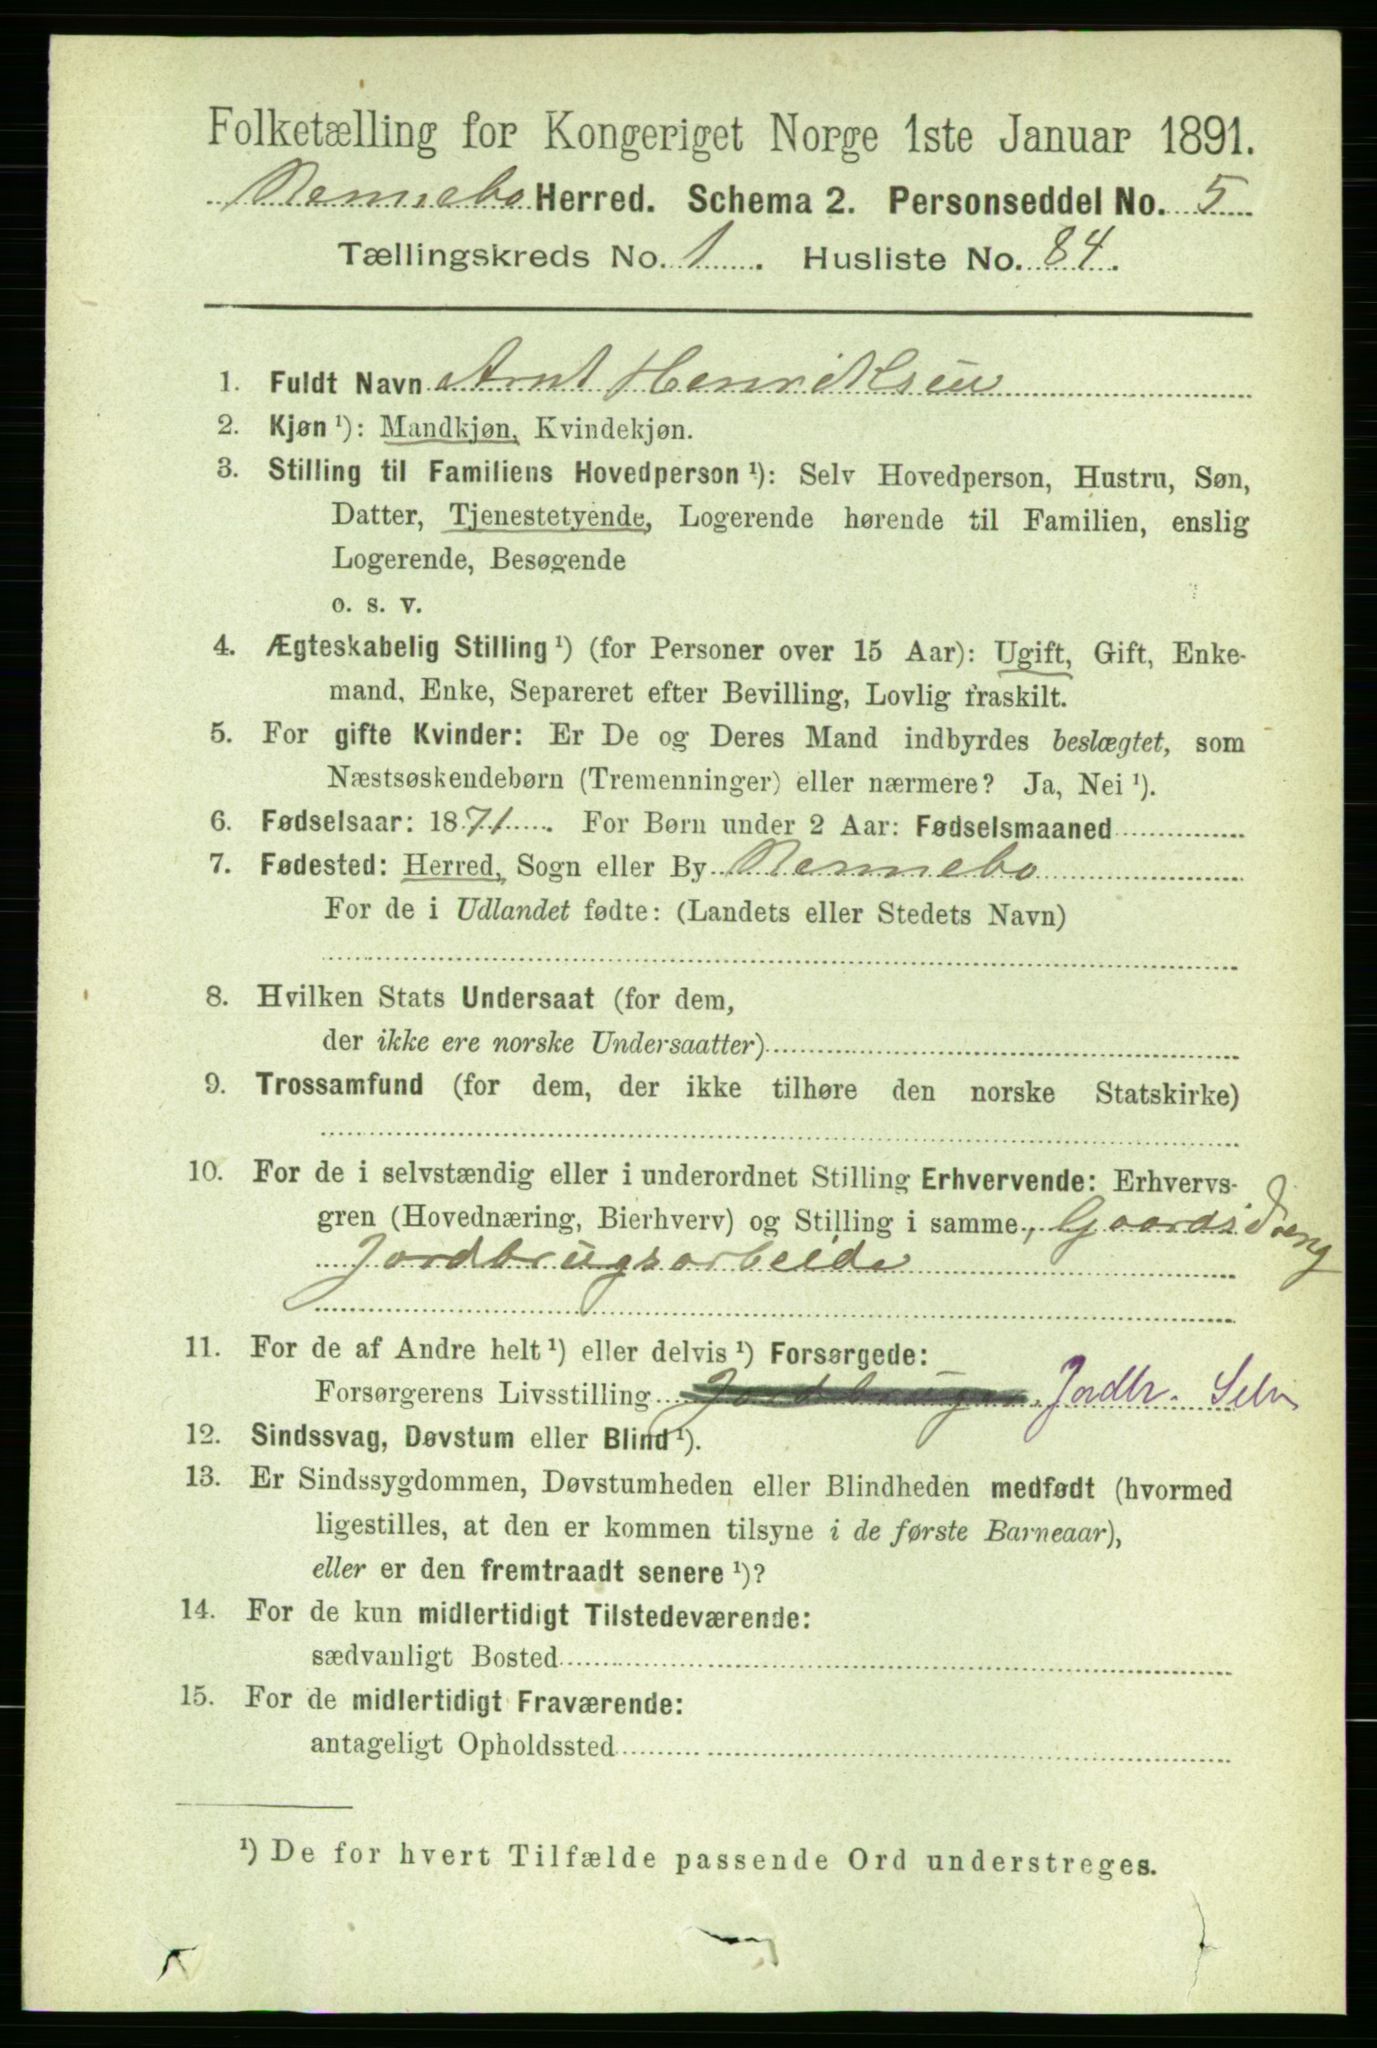 Folketælling for Kongeriget Norge 1ste Januar 1891.
Rennebo Herred. Schema 2. Personseddel No. 5
Tællingskreds No. 1. Husliste No. 84.
1. Fuldt Navn Arnt Henriksen
2. Kjøn ¹): Mandkjøn, Kvindekjøn.
3. Stilling til Familiens Hovedperson ¹): Selv Hovedperson, Hustru, Søn,
Datter, Tjenestetyende, Logerende hørende til Familien, enslig
Logerende, Besøgende
o. s. v.
4. Ægteskabelig Stilling ¹) (for Personer over 15 Aar): Ugift, Gift, Enke-
mand, Enke, Separeret efter Bevilling, Lovlig fraskilt.
5. For gifte Kvinder: Er De og Deres Mand indbyrdes beslægtet, som
Næstsøskendebørn (Tremenninger) eller nærmere? Ja, Nei ¹).
6. Fødselsaar: 1871. For Børn under 2 Aar: Fødselsmaaned
7. Fødested: Herred, Sogn eller By Rennebo
For de i Udlandet fødte: (Landets eller Stedets Navn)
8. Hvilken Stats Undersaat (for dem,
der ikke ere norske Undersaatter)
9. Trossamfund (for dem, der ikke tilhøre den norske Statskirke)
10. For de i selvstændig eller i underordnet Stilling Erhvervende: Erhvervs-
gren (Hovednæring, Bierhverv) og Stilling i samme, Gaardsdreng
Jordbrugsarbeide
11. For de af Andre helt ¹) eller delvis ¹) Forsørgede:
Forsørgerens Livsstilling Jordbr. Selv
12. Sindssvag, Døvstum eller Blind ¹).
13. Er Sindssygdommen, Døvstumheden eller Blindheden medfødt (hvormed
ligestilles, at den er kommen tilsyne i de første Barneaar),
eller er den fremtraadt senere ¹)?
14. For de kun midlertidigt Tilstedeværende:
sædvanligt Bosted
15. For de midlertidigt Fraværende:
antageligt Opholdssted
¹) De for hvert Tilfælde passende Ord understreges.